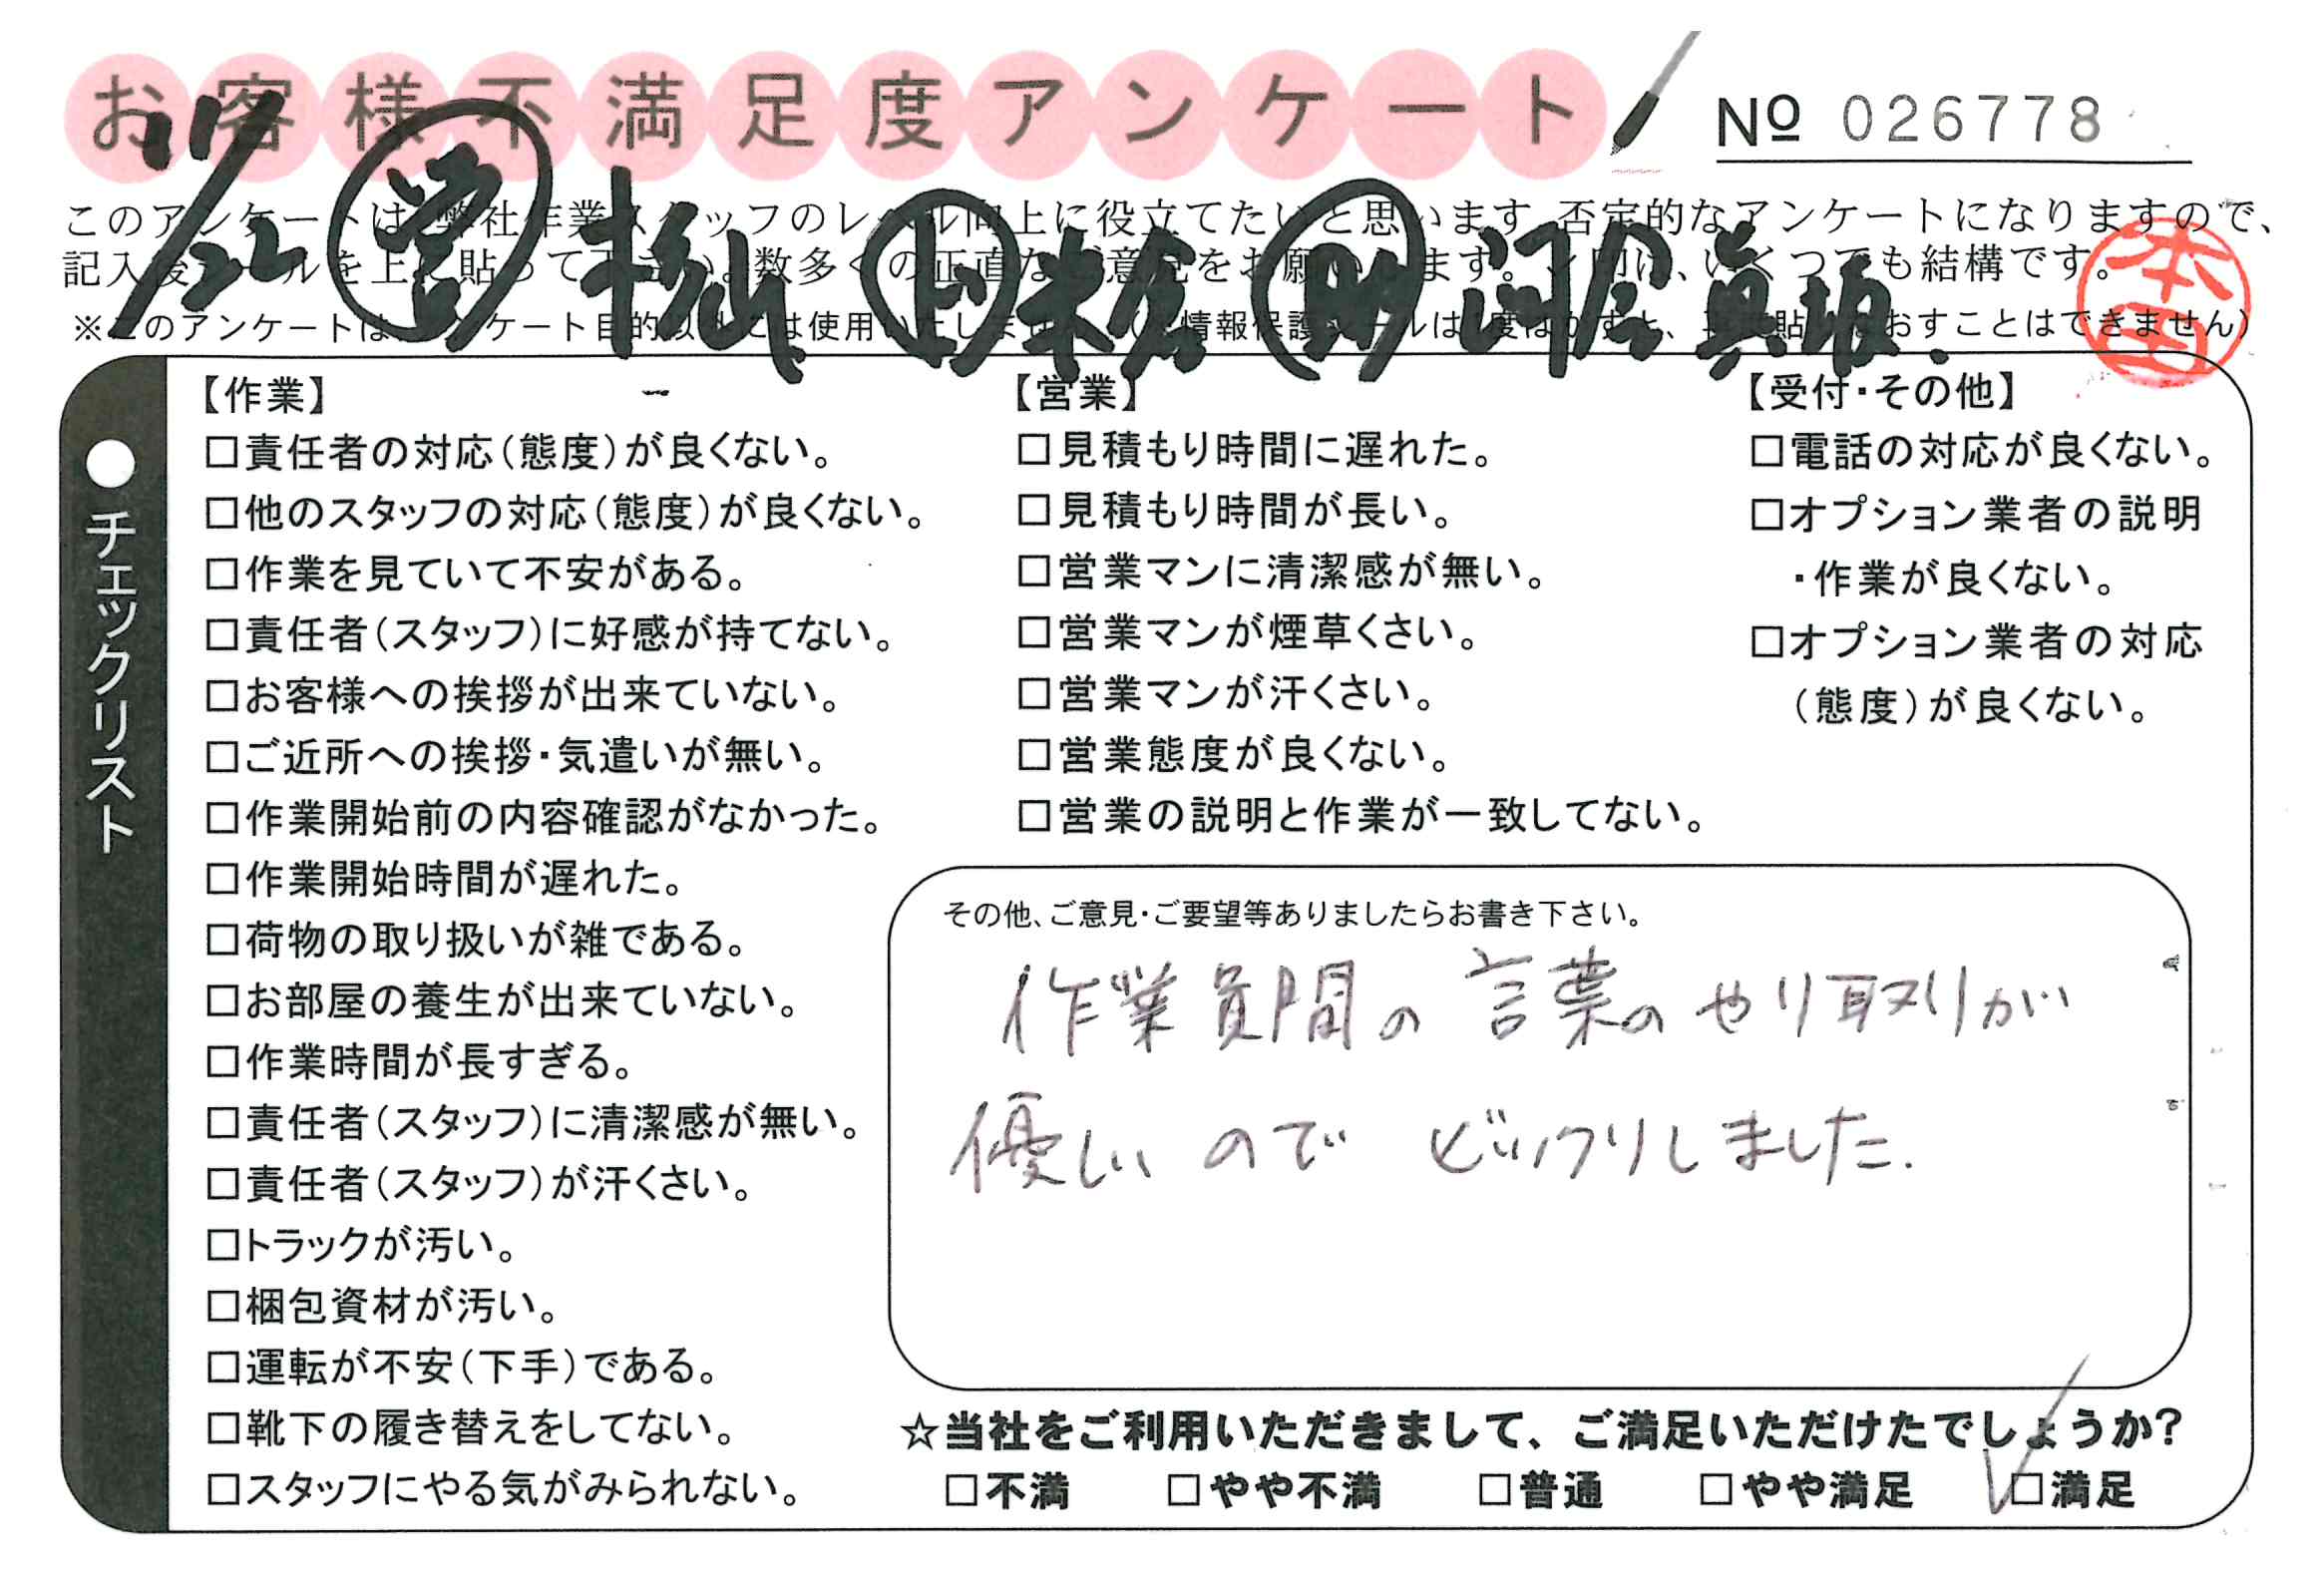 お客様不満足度アンケート
№ 026778
11/22 営 杉山 米倉 助 真坂
本田
このアンケートは、弊社作業スタッフのレベル向上に役立てたいと思います。否定的なアンケートになりますので、
記入後シールを上に貼って下さい。数多くの正直なご意見をお願いします。レ印は、いくつでも結構です。
※このアンケートは、アンケート目的以外には使用いたしません。(個人情報保護シールは1度はがすと、再度貼りなおすことはできません)
●チェックリスト
【作業】
□責任者の対応(態度)が良くない。
□他のスタッフの対応(態度)が良くない。
□作業を見ていて不安がある。
□責任者(スタッフ)に好感が持てない。
□お客様への挨拶が出来ていない。
□ご近所への挨拶・気遣いが無い。
□作業開始前の内容確認がなかった。
□作業開始時間が遅れた。
□荷物の取り扱いが雑である。
□お部屋の養生が出来ていない。
□作業時間が長すぎる。
□責任者(スタッフ)に清潔感が無い。
□責任者(スタッフ)が汗くさい。
□トラックが汚い。
□梱包資材が汚い。
□運転が不安(下手)である。
□靴下の履き替えをしてない。
□スタッフにやる気がみられない。
【営業】
□見積もり時間に遅れた。
□見積もり時間が長い。
□営業マンに清潔感が無い。
□営業マンが煙草くさい。
□営業マンが汗くさい。
□営業態度が良くない。
□営業の説明と作業が一致してない。
【受付・その他】
□電話の対応が良くない。
□オプション業者の説明
・作業が良くない。
□オプション業者の対応
(態度)が良くない。
その他、ご意見・ご要望等ありましたらお書き下さい。
作業員間の言葉のやり取りが
優しいのでビックリしました.
☆当社をご利用いただきまして、ご満足いただけたでしょうか?
□不満 □やや不満 □普通 □やや満足 ☑満足